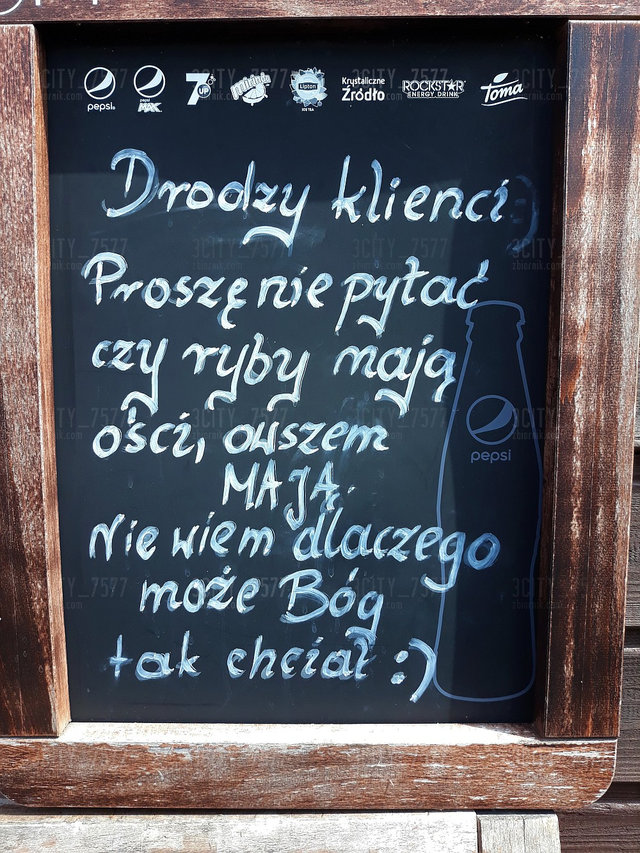 pepsi pepsi MAX 7UP Mirinda Lipton ICE TEA Krystaliczne Źródło ROCKSTAR ENERGY DRINK Toma
Drodzy klienci
Proszę nie pytać
czy ryby mają
ości, owszem
MAJĄ.
Nie wiem dlaczego
może Bóg
tak chciał :)
pepsi
3CITY_7577
zbiornik.com